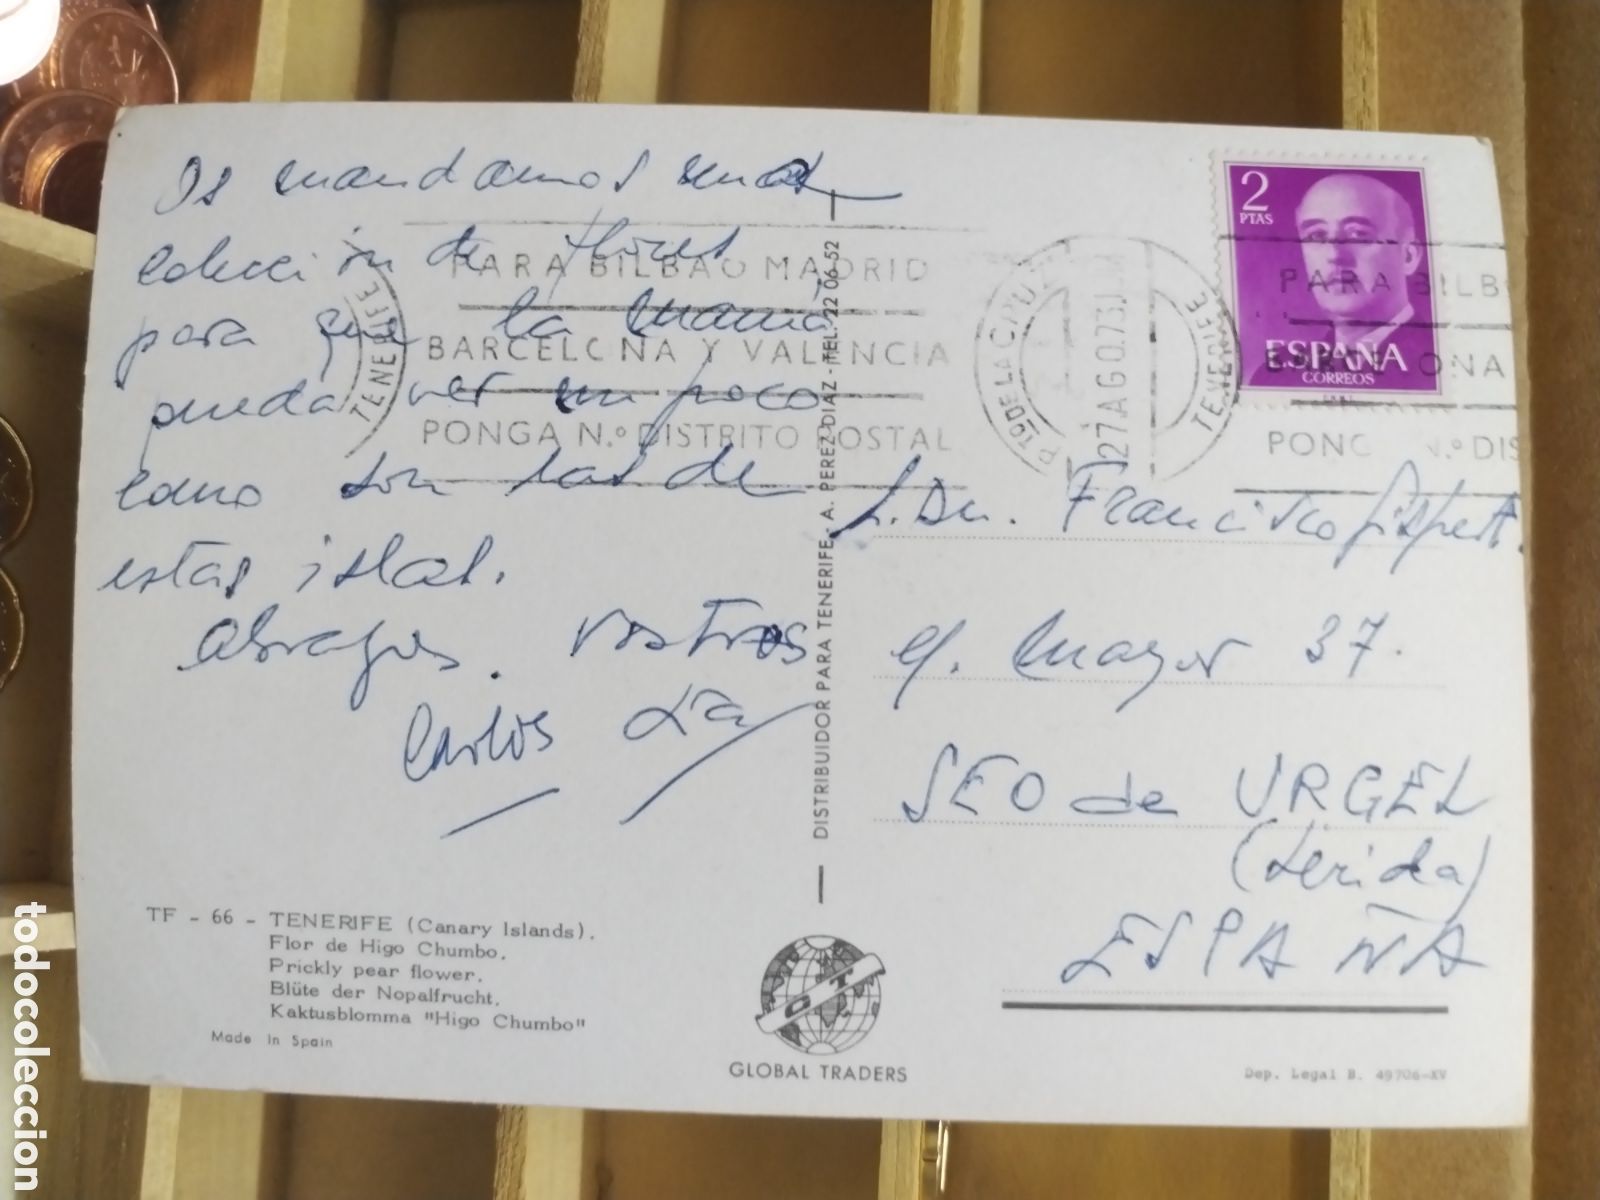 Os mandamos unas
colección de flores
para que la mamá
pueda ver un poco
como son las de
estas islas.
Abrazos. Vostros
Carlos
S. Dn. Francisco Gispert.
C/. Mayor 37.
SEO de URGEL
(Lerida)
ESPAÑA
2
PTAS
ESPAÑA
CORREOS
PARA BILBAO MADRID
BARCELONA Y VALENCIA
PONGA N.º DISTRITO POSTAL
TENERIFE
Pto DE LA CRUZ
27 AGO.73
TENERIFE
PARA BILB
ONA
PONG N.º DIS
DISTRIBUIDOR PARA TENERIFE - A. PEREZ DIAZ - TEL. 22 06 52
TF - 66 - TENERIFE (Canary Islands).
Flor de Higo Chumbo.
Prickly pear flower.
Blüte der Nopalfrucht.
Kaktusblomma "Higo Chumbo"
Made in Spain
GT
GLOBAL TRADERS
Dep. Legal B. 49706-XV
todocoleccion